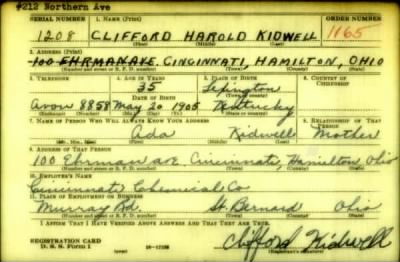 4212 Northern Ave
SERIAL NUMBER 1. NAME (Print) ORDER NUMBER
1208 CLIFFORD HAROLD KIDWELL 1165
(First) (Middle) (Last)
2. ADDRESS (Print)
100 EHRMAN AVE. CINCINNATI, HAMILTON, OHIO
(Number and street or R. F. D. number) (Town) (County) (State)
3. TELEPHONE 4. AGE IN YEARS 5. PLACE OF BIRTH 6. COUNTRY OF CITIZENSHIP
35 Lexington
(Town or county)
DATE OF BIRTH
Avon 8858 May 20 1905 Kentucky
(Exchange) (Number) (Mo.) (Day) (Yr.) (State or country)
7. NAME OF PERSON WHO WILL ALWAYS KNOW YOUR ADDRESS 8. RELATIONSHIP OF THAT PERSON
Ada Kidwell Mother
(Mr., Mrs., Miss) (First) (Middle) (Last)
9. ADDRESS OF THAT PERSON
100 Ehrman ave. Cincinnati, Hamilton Ohio
(Number and street or R. F. D. number) (Town) (County) (State)
10. EMPLOYER'S NAME
Cincinnati Chemical Co
11. PLACE OF EMPLOYMENT OR BUSINESS
Murray Rd. St. Bernard Ohio
(Number and street or R. F. D. number) (Town) (County) (State)
I AFFIRM THAT I HAVE VERIFIED ABOVE ANSWERS AND THAT THEY ARE TRUE.
REGISTRATION CARD
D. S. S. Form 1 16-17105 Clifford Kidwell